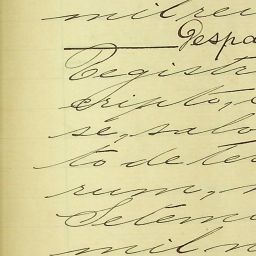 mil rei
Despa
Registr
cripto,
se, salv
to de te
rum,
Setem
mil n